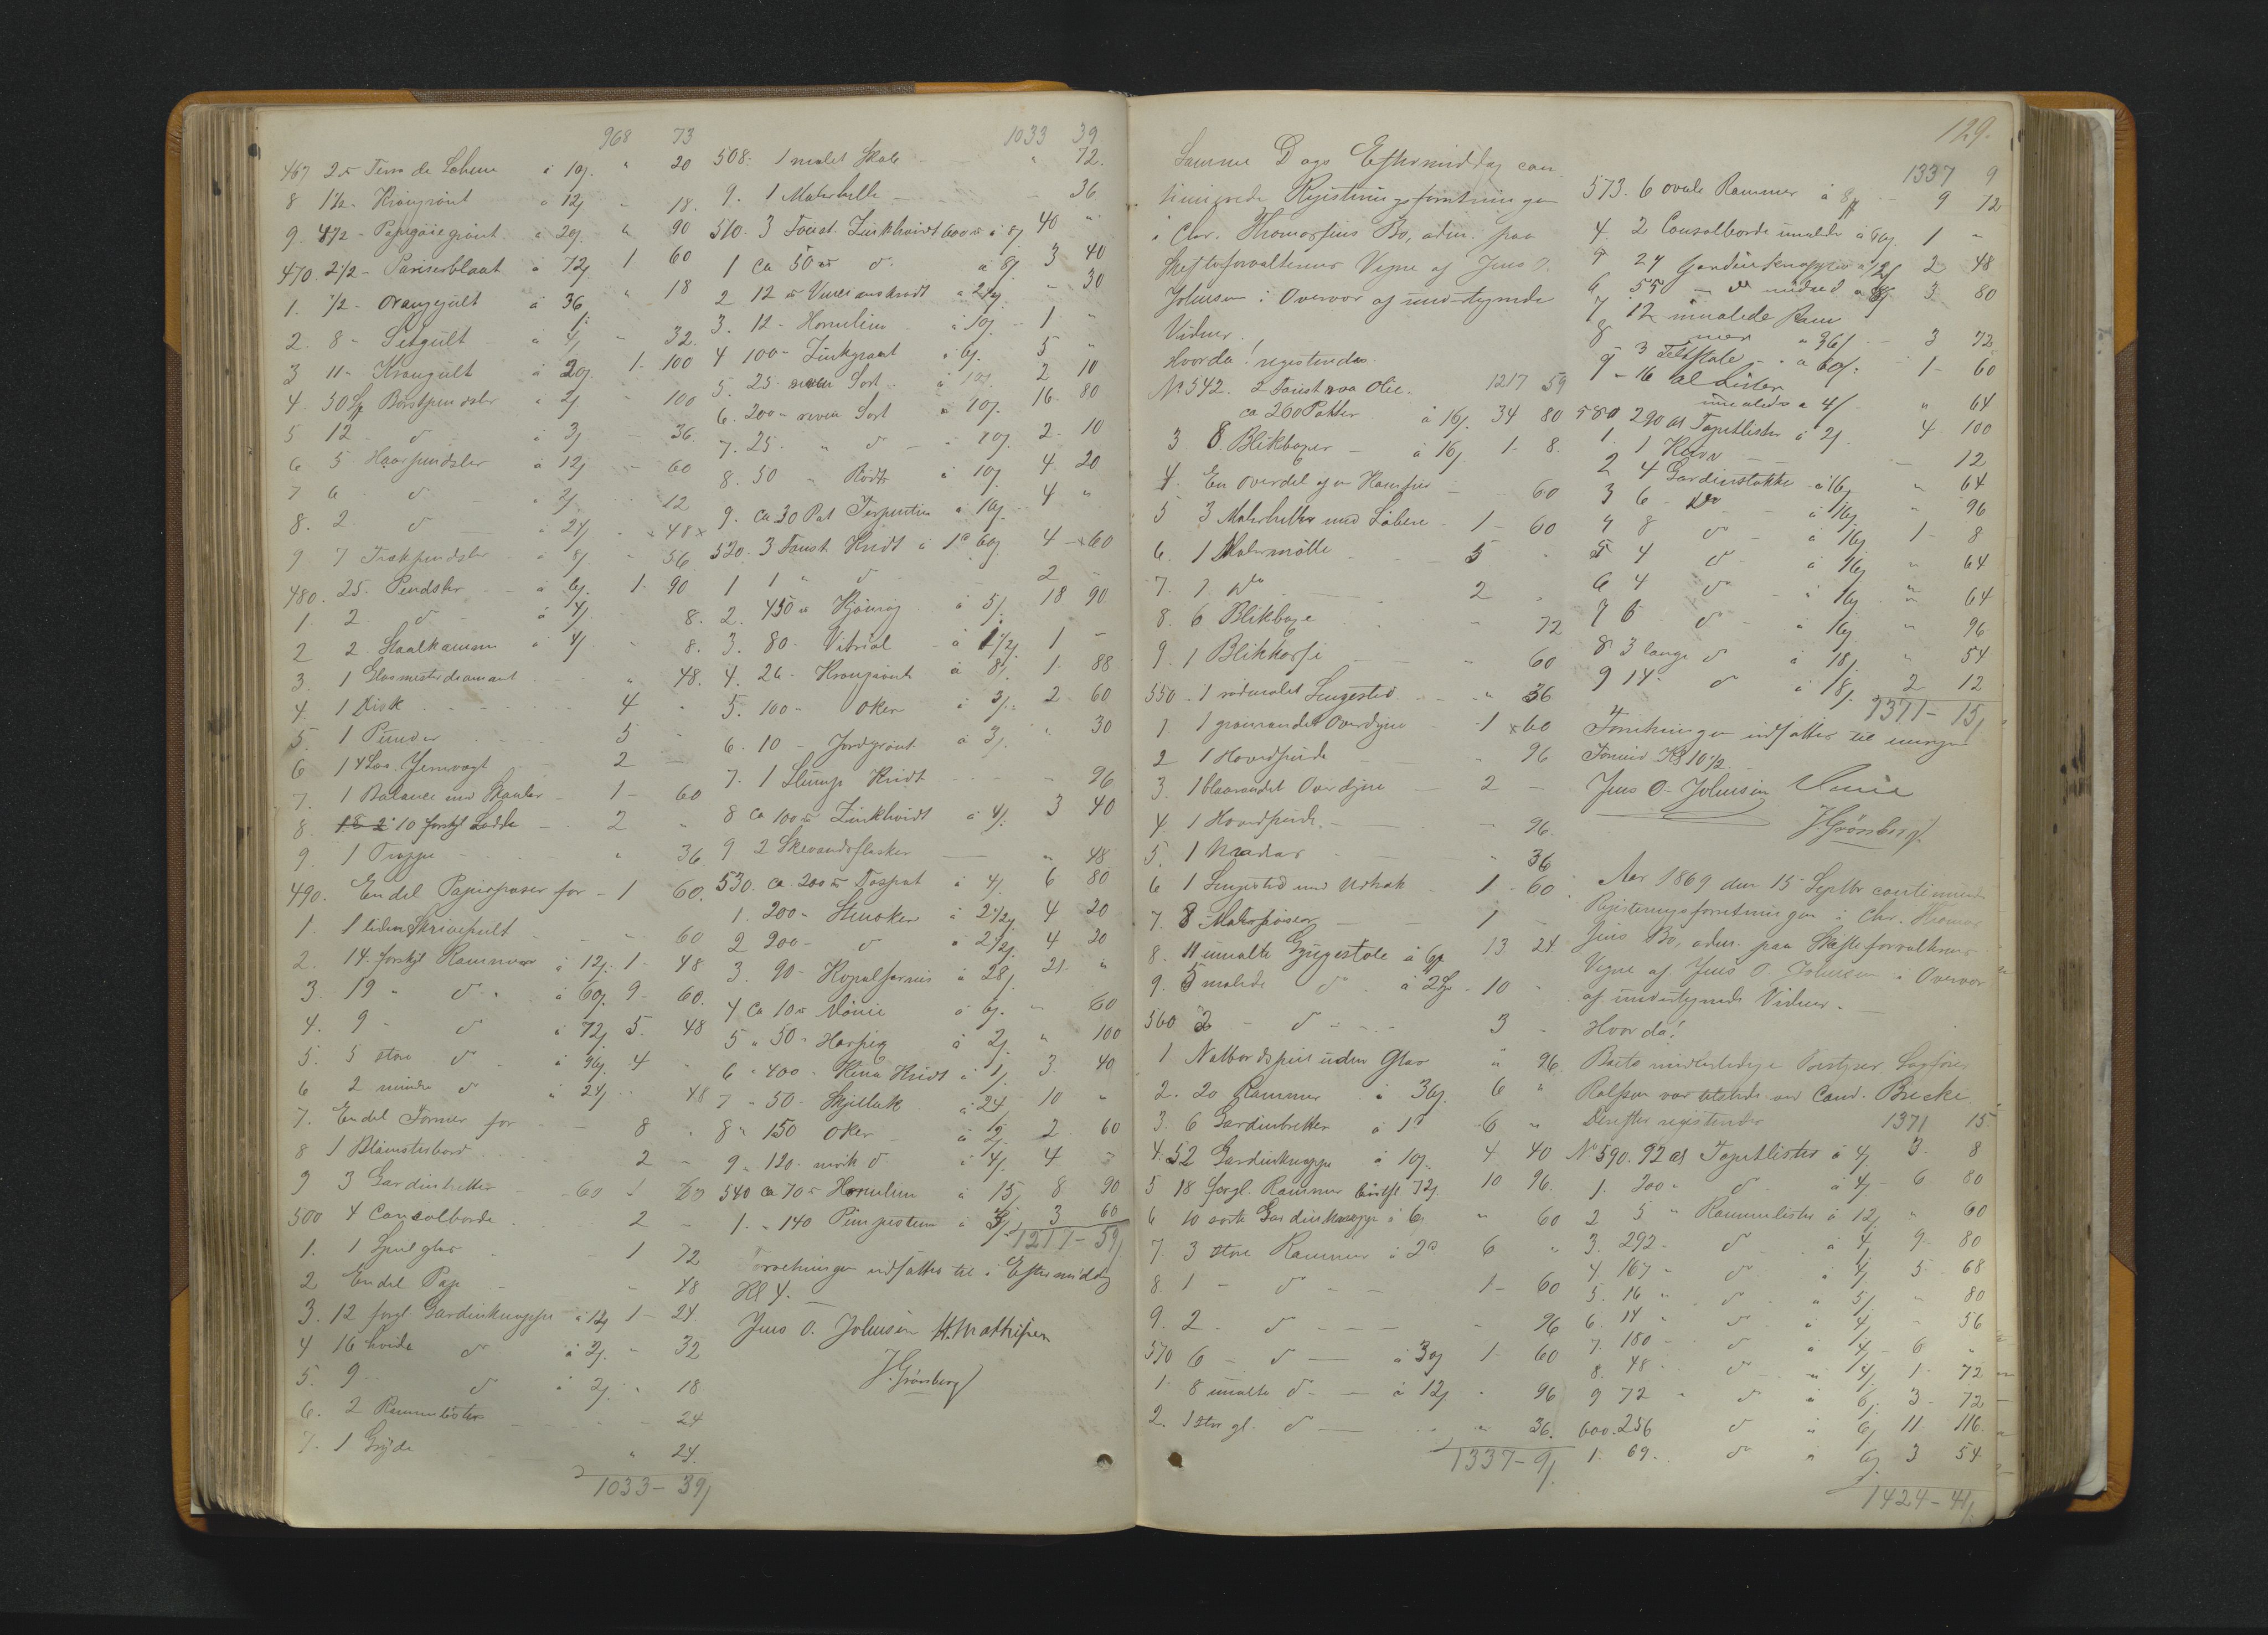 968 73
467 25 Terra de Sienna à 10s. " 20
8 1½ - Kromgrönt à 12s - 18.
9. 4½ - Papegoiegrönt à 20s " 90
470. 2½ - Pariserblaat à 72s 1 60
1. ½ - Orangegult à 36s " 18
2. 8 - Sitgult à 4s - 32.
3 11 - Kromgult à 20s 1- 100
4. 50 Borstpendsler à 2s - 100
5 12 - do à 3s - 36.
6 5 Haarpendsler à 12s - 60
7 6 - do à 2s - 12
8. 2 do à 24s - 48
9 7 Trækpendsler à 8s " 56
480. 25. Pendsler - à 6s 1- 90
1. 2 do à 4s 8.
2 2 Staalkamme à 4s - 8.
3. 1 Glasmesterdiamant " 48.
4. 1 Disk 4 -
5. 1 Punder 5 -
6 1 Jernvægt 2 -
7. 1 Balance med Skaaler - 1- 60
8. 10 forskjl Lodde - 2 "
9. 1 Trappe " 36
490. En del Papirsposer for - 1 60.
1. 1 liden Skrivepult - 60
2. 14. forskjl Rammer à 12s. 1- 48
3. 19 " do " à 60s. 9- 60.
4. 9 - do à 72s 5. 48
5. 5 store do à 96s 4 -
6 2 mindre do à 24s 48
7. En del Former for - 8
8 1 Blomsterbord 2 -
9 3 Gardinbretter 60
500 4 Consolborde 2 -
1. 1 Speilglas - 1 72
2 En del Pap - - 48
3. 12 forgl Gardinknapper à 12s 1- 24.
4 16 hvide do à 2s. - 32
5. 9 - do à 2s. - 18
6. 2 Rammelister - 24
7. 1 Gryde " 24.
1033 - 39s
1033 39
508. 1 malet Skab - " 72.
9. 1 Malerhylle - 36
510. 3 Foust. Zinkhvidt 600 à 8s 40 "
1 Ca 50 do. à 8s 3 40
2 12 à 2½s - 30
3. 12 - Hornlim à 10s - 1 "
4 100 - Zinkgraat à 6s. 5 "
5. 25 - reven Sort à 10s 2 10
6. 200 - reven Sort à 10s. 16- 80
7. 25 - " do - à 10s 2- 10
8. 50 " Rödt à 10s 4. 20
9. Ca 30 Pot Terpentin à 10s 4 "
520. 3 Foust Kridt à 60s 4 - 60
1 1 " do 2 -
2. 450 à 5s. 18 90
3. 80 - Vitriol à 1½s 1 -
4. 26 - Kromgrönt à 8s 1- 88
5. 100 - Oker à 3s. 2- 60
6. 10 - Jordgrönt à 3s. " 30
7. 1 Slump Kridt - - 96
8 Ca 100 Zinkhvidt à 4s. 3 40
9 2 Skevandsflasker - " 48
530. Ca. 200 à 4s 6 80
1. 200 - Stenoker à 2½s 4 20
2 200 - do à 2½s 4 20
3. 90 - Kopalfernis à 28s 21 - "
4 Ca 10 Mönie à 6s. - 60
5 " 50 - Harpix à 2s " 100
6 " 400 - Kina Kridt à 1s 3 40
7 " 50 - Skjellak à 24 10 "
8 " 150 oker - à 2s 2 60
9 " 120 - mörk do. à 4s 4
540 Ca 70 Hornlim à 15s 8 90
1. " 140 Pimpsten 3 60
1217 - 59s
Forretningen udsattes til i Eftermiddag
Kl 4. -
Jens O. Johnsen H. Mathisen
J. Grönberg
129.
Samme Dags Eftermiddag con-
tinuerede Registreringsforretningen
i Chr. Thomassens Bo, adm. paa
Skifteforvalterens Vegne af Jens O.
Johnsen i Overvær af undertegnede
Vidner.
Hvorda! registreredes.
No 542. 2 Foust raa Olie. 1217 59
ca 260 Potter à 16s. 34 80
3 8 Blikboxer - à 16s 1- 8.
4. En Overdel af en - 60
5 3 Malerhylter med Löbere - 1- 60
6. 1 Malermölle - 5 "
7. 1 do - 2 "
8. 6 Blikboxe - 72
9. 1 Blikkasse - " 60
550. 1 rödmalet Sengested - " 36
1. 1 grönrandet Overdyne - 1 60
2 1 Hovedpude - " 96
3. 1 blaarandet Overdyne - 2 -
4. 1 Hovedpude - " 96.
5. 1 Madras - " 36
6 1 Sengested med Udtræk 1- 60
7. 8 Malerposer - 1 -
8. 11 umalte Gyngestole 13. 24
9. 5 malede do - 10 "
560 2 - do - - 3 -
1 Natbordspeil uden Glas " 96
2. 20 Rammer à 36s. 6 "
3. 6 Gardinbretter 6 "
4. 52 Gardinknappe à 10s. 4 40
5 18 forgl. Rammer 72s 10 96.
6 10 sorte Gardinknappe à 6s " 60
7. 3 store Rammer 6 "
8. 1 - do - - 1- 60
9. 2 do - - " 96
570 6 - do - à 30s 1- 60
1. 8 umalte do - à 12s " 96
2. 1 stor gl. do - " 36.
1337 - 9s.
1337 9
573. 6 ovale Rammer 9 72
4. 2 Consolborde umalte 1 "
5 24 Gardinknapper 2 48
6 55 - do mindre 3 80
7 12 umalede Ram
8 mer à 36s - 3 72
3 Feltstole - à 60s. 1- 60
9 - 16 al Lister
umalede à 4s " 64
580 290 al Tapetlister à 2s. 4 100
1. 1 Kurv - - 12
2 4 Gardinstokke à 16s " 64
3 6 - do à 16s " 96
4 8 do à 16s 1- 8
5 4 do à 16s " 64
6 4 do à 16s " 64
7 6 do à 16s " 96
8 3 lange do à 18s " 54
9 14 do à 18s 2 12
1371 - 15s
Forretningen udsattes til imorgen
Formid Kl 10½.
Jens O. Johnsen
J. Grönberg.
Aar 1869 den 15 Septbr continuerede
Registreringsforretningen i Chr. Thomas
sens Bo, adm. paa Skifteforvalterens
Vegne af Jens O. Johnsen i Overvær
af undertegnede Vidner. -
Hvorda!
Boets midlertidige Bestyrer Sagförer
Rolfsen var tilstede ved Cand. Brecke.
Derefter registreredes 1371 15.
No 590. 92 al Tapetlister à 4s 3. 8
1. 200 " do à 4s - 6 80
2 5 " Rammelister à 12s " 60
3. 292 - do à 4s 9- 80
4 167 - do à 4s 5- 68
5. 16 " do à 5s " 80
6. 14 " do à 4s " 56
7. 180 - do à 4s - 6 "
8. 48 - do à 4s 1- 72
9 72 " do à 6s 3- 72
600. 256 do à 6s 11 116
1. 69. - do à 6s 3 54
1424 - 41s